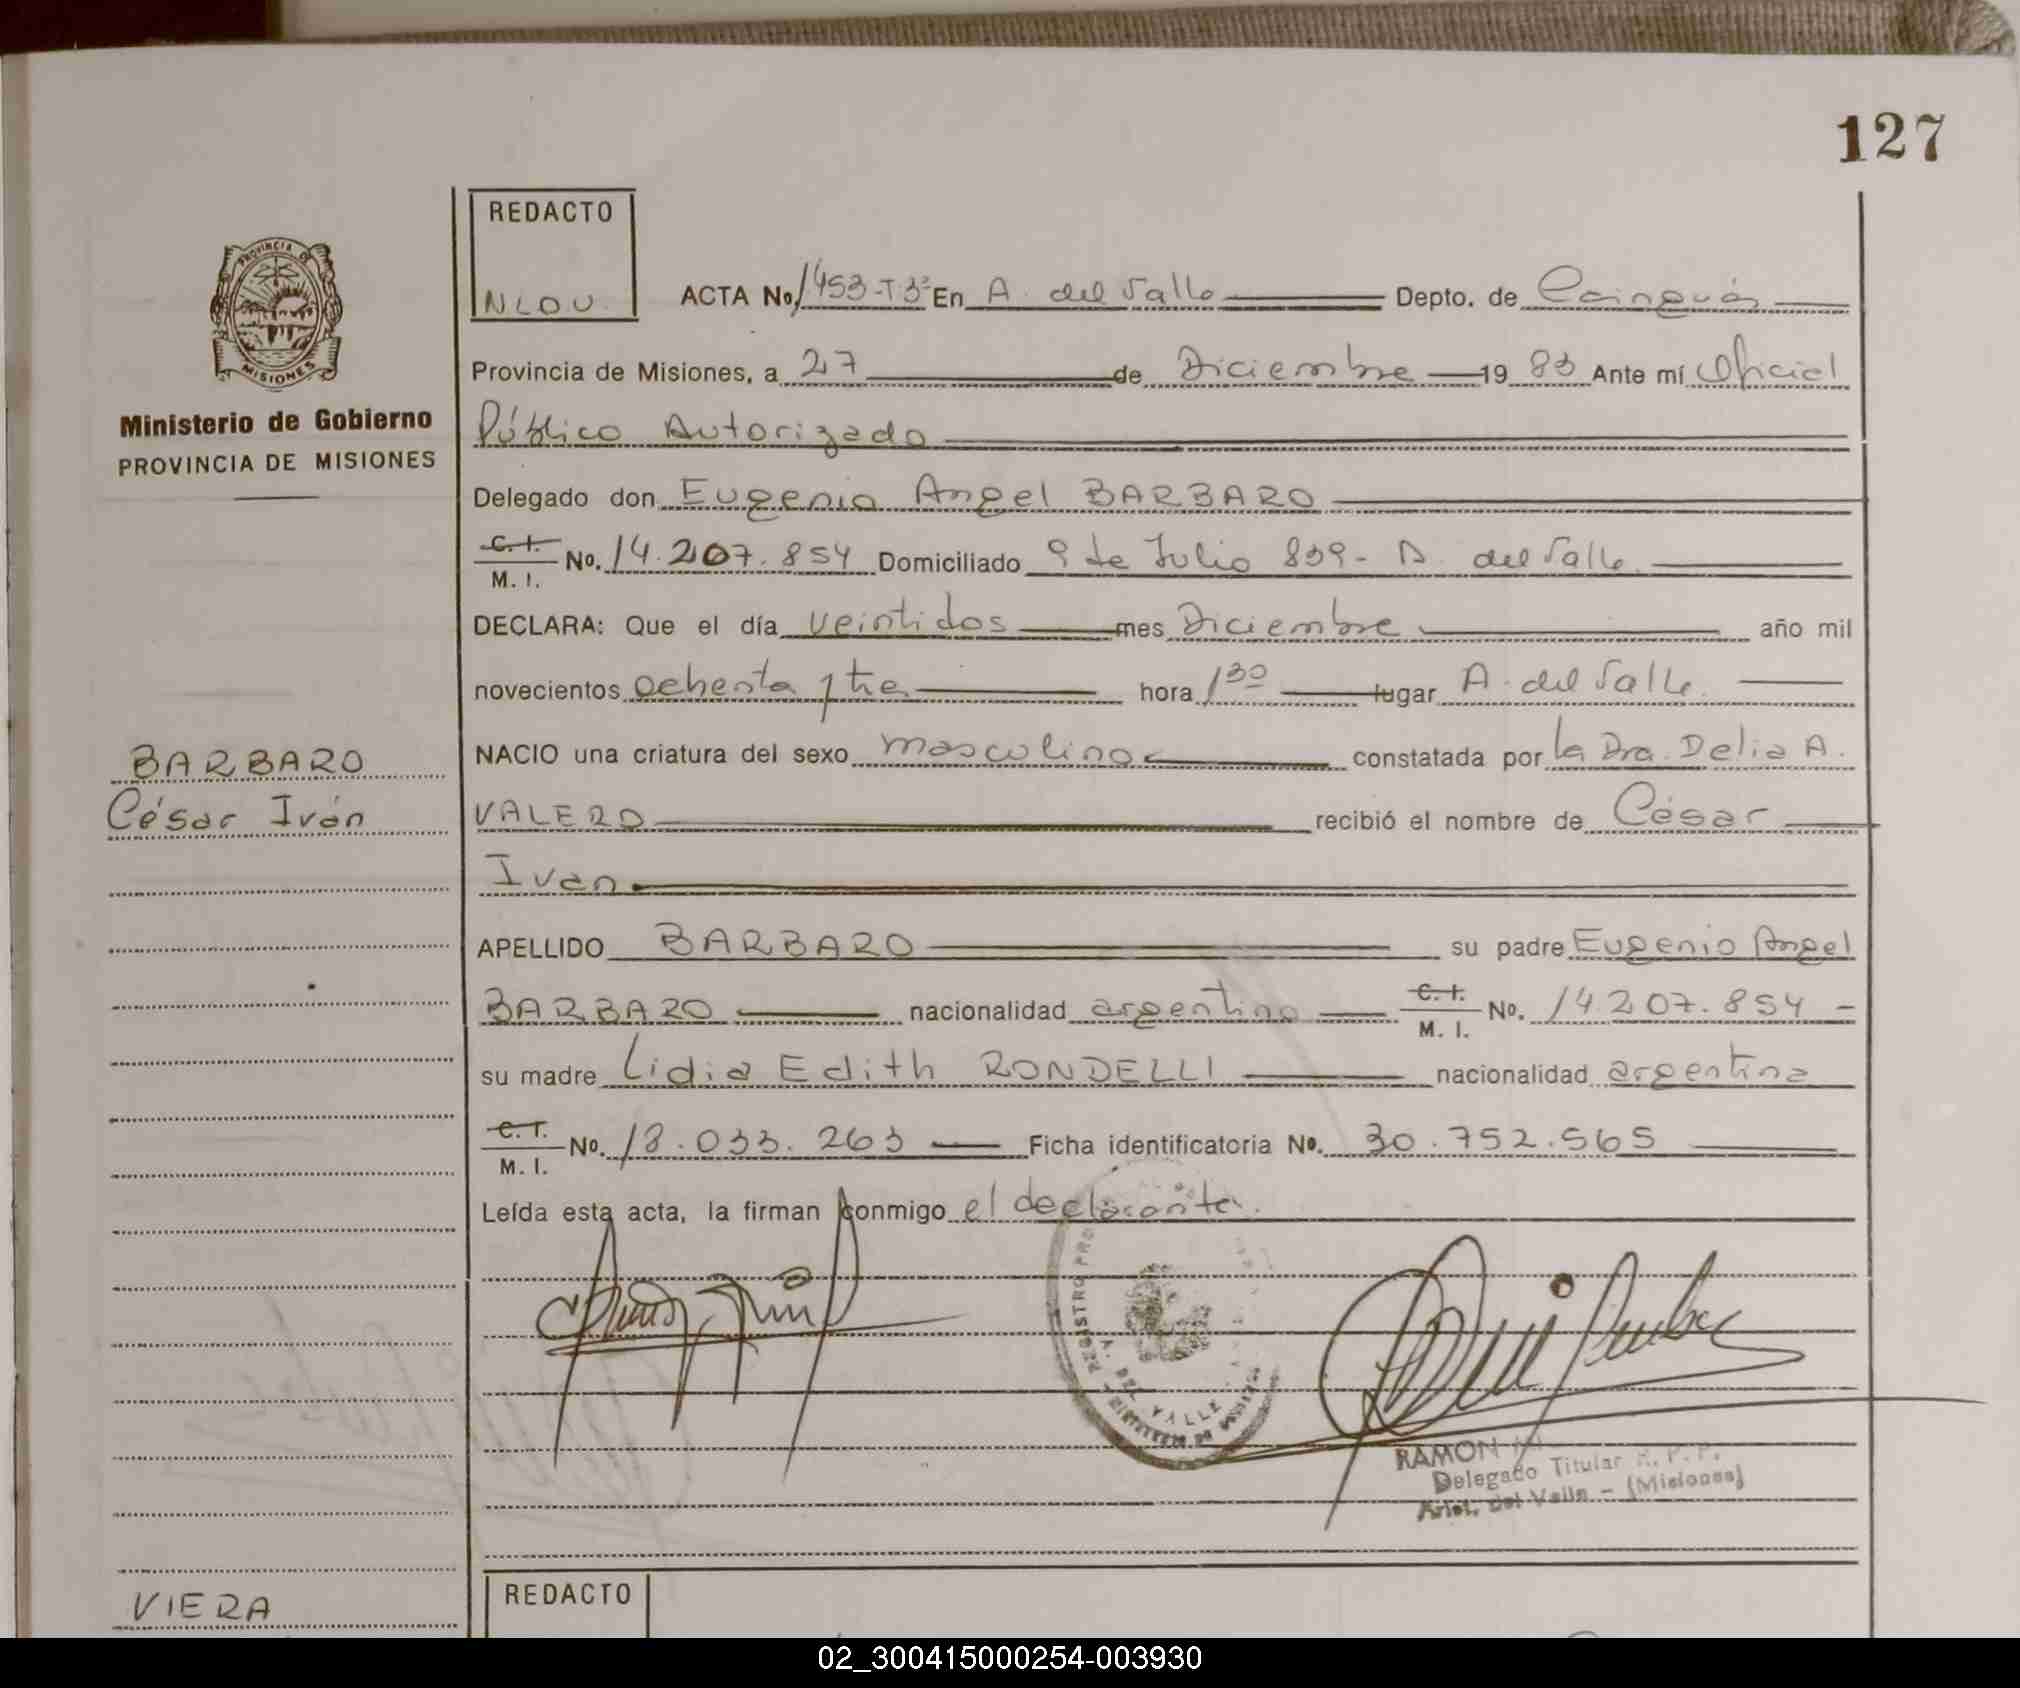 127
REDACTO
NLDU.
ACTA No. 1453-T3º En A. del Valle Depto. de Cainguás
Provincia de Misiones, a 27 de Diciembre 19 83 Ante mí Oficial
Público Autorizado
Delegado don Eugenio Angel BARBARO
C. I. M. I. No. 14.207.854 Domiciliado 9 de Julio 839 - A. del Valle
DECLARA: Que el día veintidos mes Diciembre año mil
novecientos ochenta y tres hora 1 30 lugar A. del Valle
NACIO una criatura del sexo masculino constatada por la Dra. Delia A.
VALERO recibió el nombre de César
Iván
APELLIDO BARBARO su padre Eugenio Angel
BARBARO nacionalidad argentino C. I. M. I. No. 14.207.854 -
su madre Lidia Edith RONDELLI nacionalidad argentina
C. I. M. I. No. 18.033.263 Ficha identificatoria No. 30.752.565
Leída esta acta, la firman conmigo el declarante.
PROVINCIA DE
MISIONES
Ministerio de Gobierno
PROVINCIA DE MISIONES
BARBARO
César Iván
REGISTRO PRO
A. DEL VALLE
MINISTERIO DE GOBIERNO
RAMON
Delegado Titular R. P. P.
Arist. del Valle - (Misiones)
VIERA
REDACTO
02_300415000254-003930